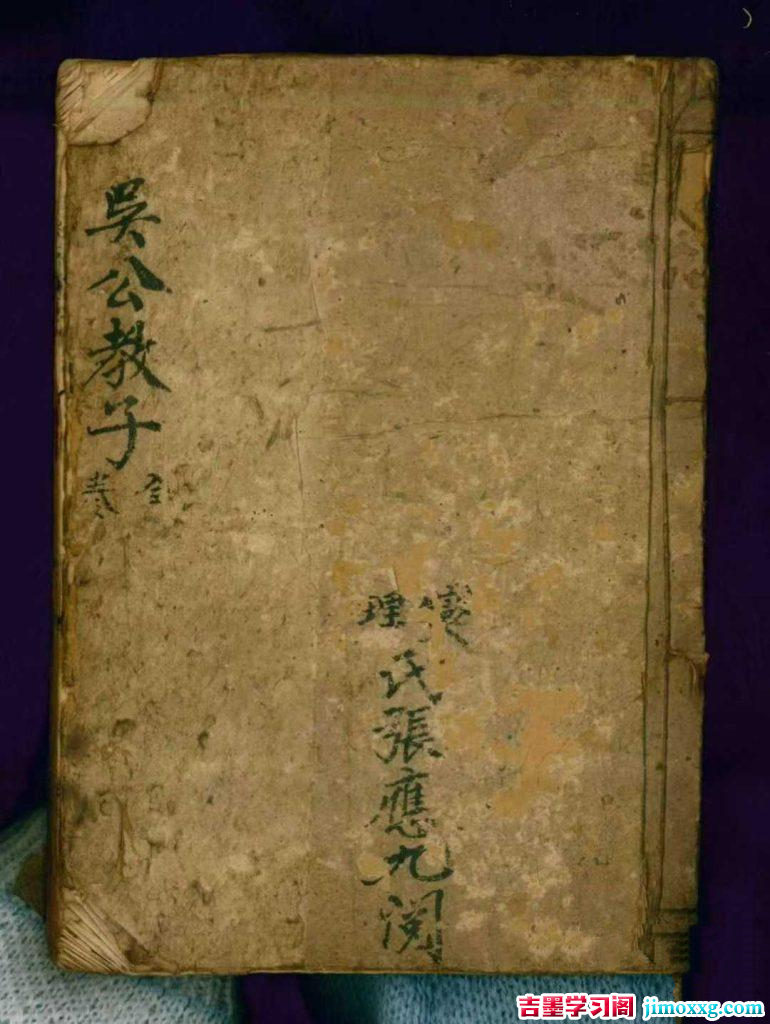 吳公教子
全卷
燮理
氏張應九閱
吉墨学习阁 jimoxxg.com